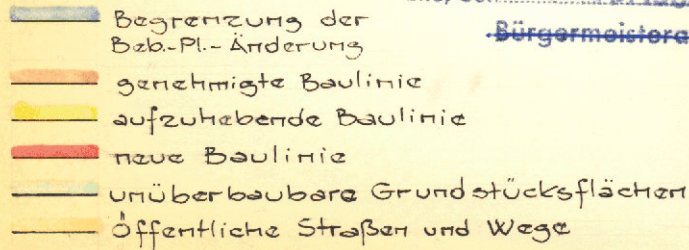 Begrenzung der
Beb.-Pl.-Änderung
Bürgermeistera
genehmigte Baulinie
aufzuhebende Baulinie
neue Baulinie
unüberbaubare Grundstücksflächen
Öffentliche Straßen und Wege